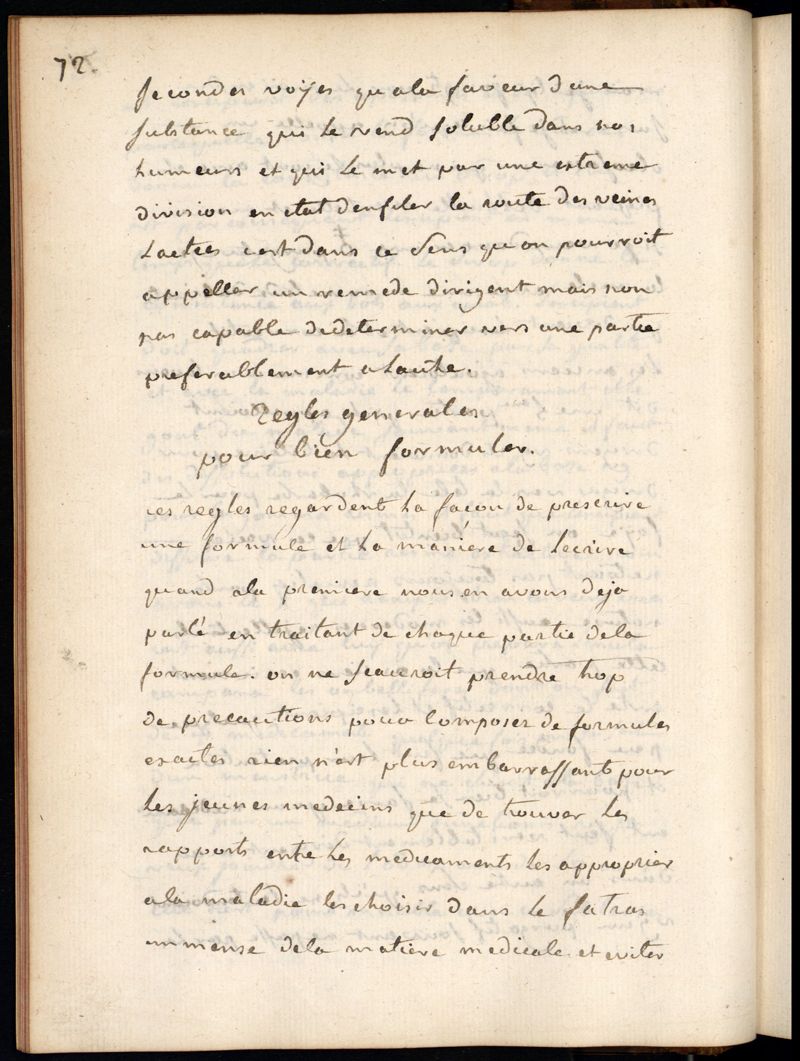 72.
secondes voÿes qu'a la faveur d'une
substance qui le rend soluble dans nos
humeurs et qui le met par une extreme
division en etat d'enfiler la route des veines
lactées c'est dans ce sens qu'on pourroit
appeller un remede dirigent mais non
pas capable de determiner vers une partie
preferablement a l'autre.
Regles generales
pour bien formuler.
ces regles regardent la façon de prescrire
une formule et la maniére de lecrire
quand a la premiere nous en avons deja
parlé en traitant de chaque partie de la
formule. on ne scauroit prendre trop
de precautions pour composer de formules
exactes rien n'est plus embarrassant pour
les jeunes medecins que de trouver les
rapports entre les medicaments les approprier
a la maladie les choisir dans le fatras
immense de la matiere medicale et eviter